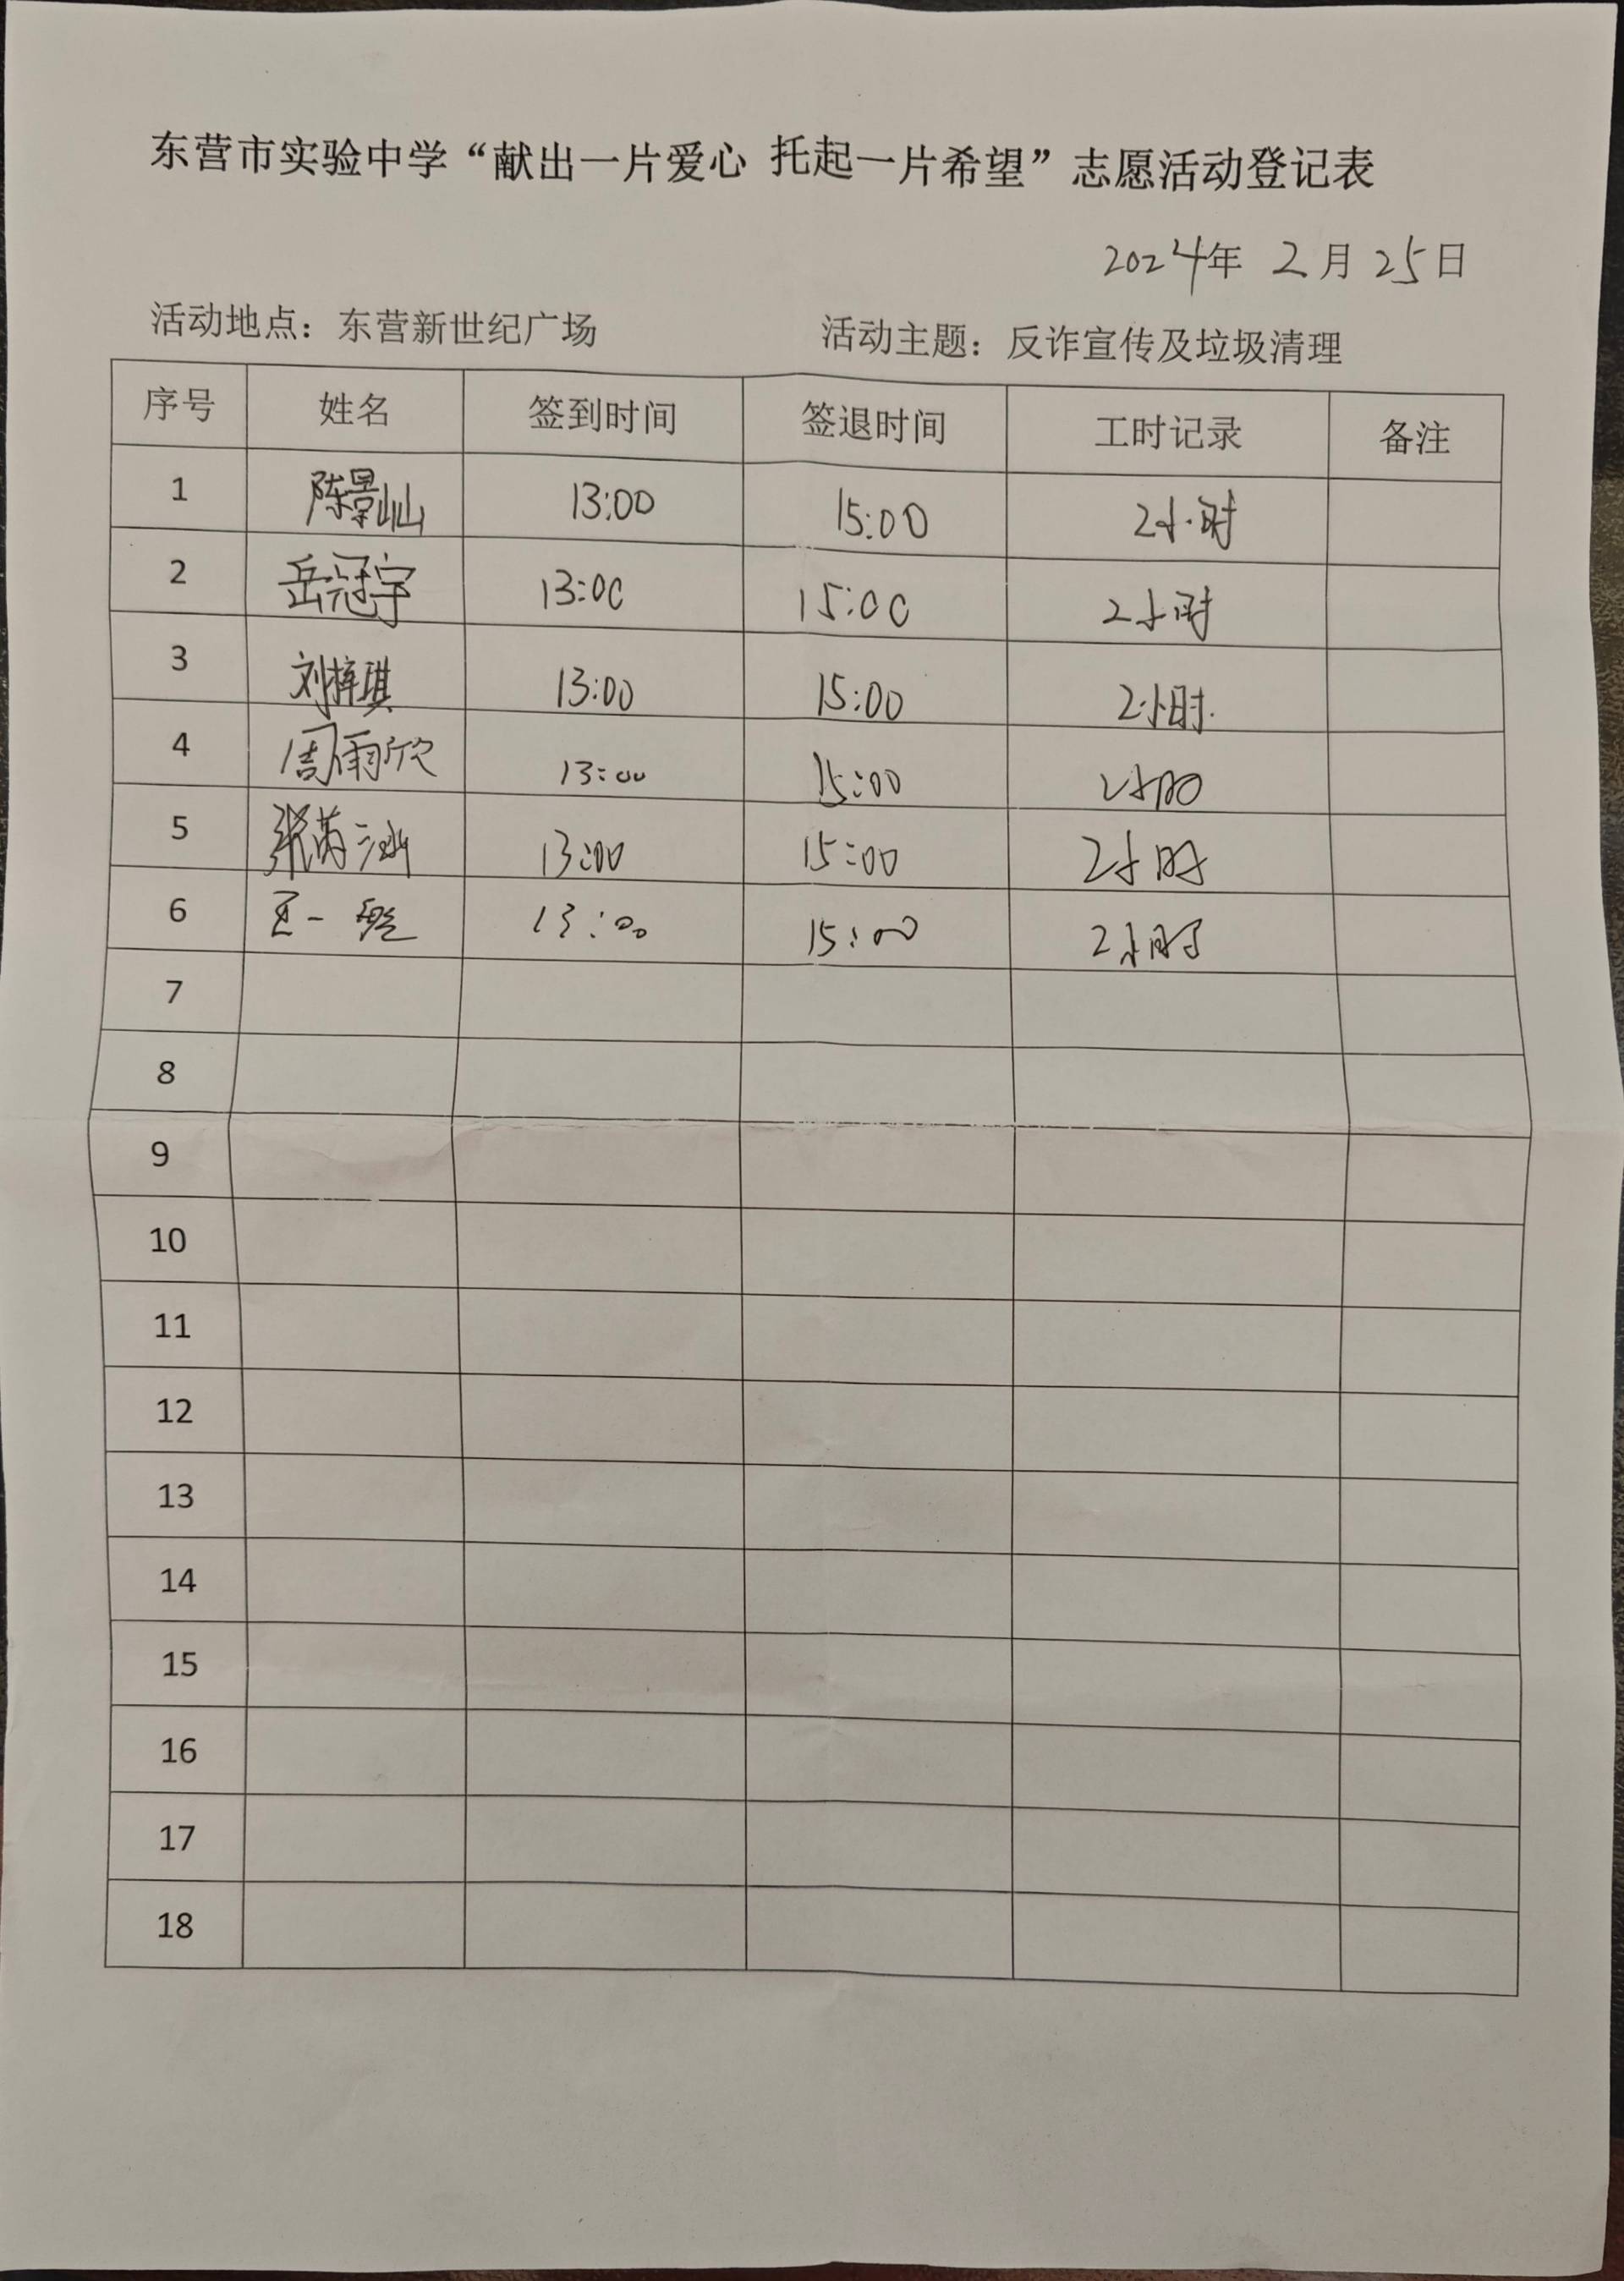 东营市实验中学“献出一片爱心 托起一片希望”志愿活动登记表
2024年 2月 25日
活动地点：东营新世纪广场 活动主题：反诈宣传及垃圾清理
序号 姓名 签到时间 签退时间 工时记录 备注
1 陈景屾 13:00 15:00 2小时
2 岳冠宇 13:00 15:00 2小时
3 刘梓琪 13:00 15:00 2小时.
4 周雨欣 13:00 15:00 2小时
5 张芮涵 13:00 15:00 2小时
6 王一 13:00 15:00 2小时
7
8
9
10
11
12
13
14
15
16
17
18